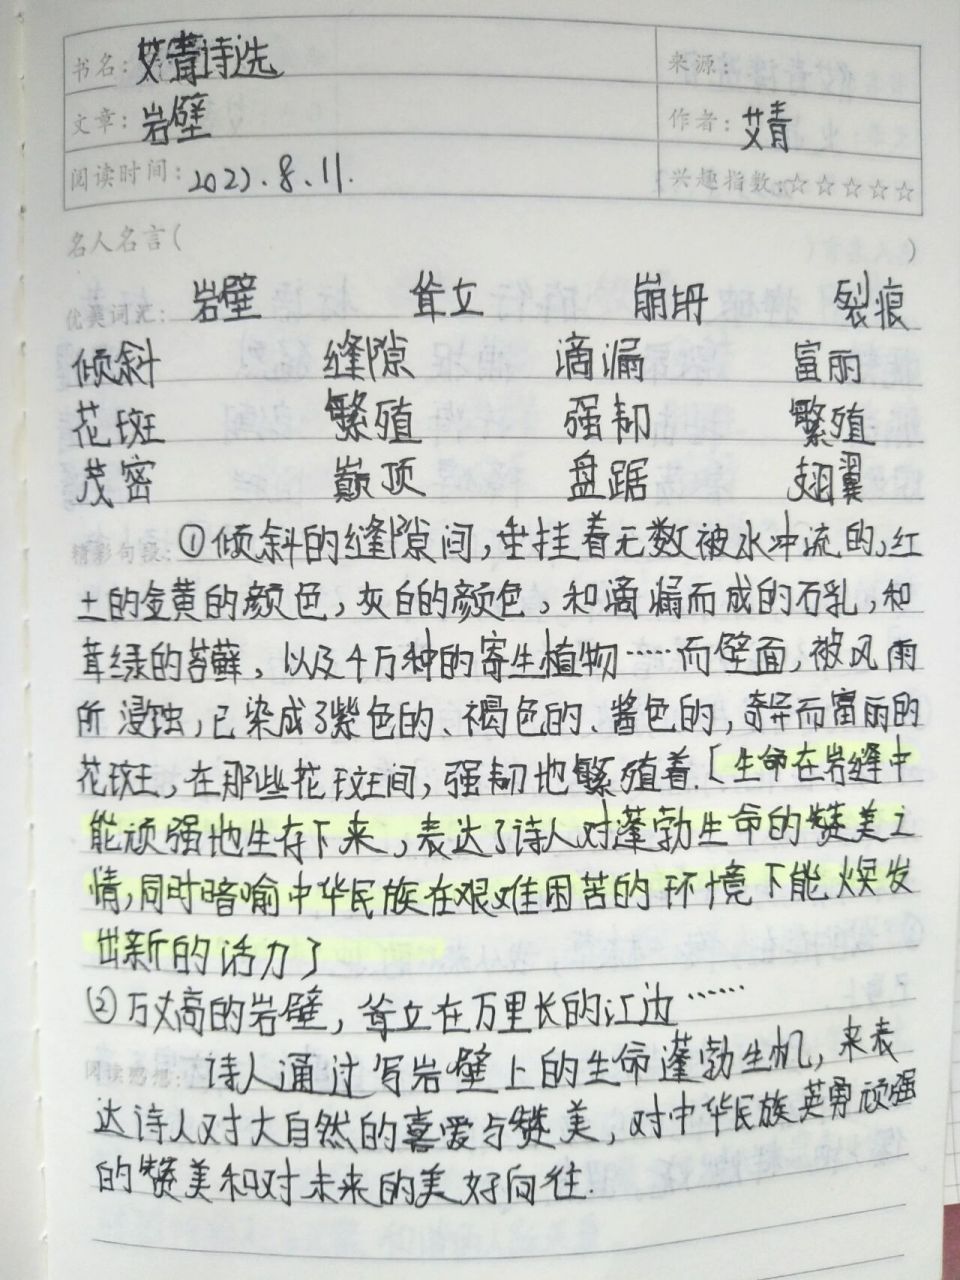 书名：艾青诗选 来源：
文章：岩壁 作者：艾青
阅读时间：2022.8.11. 兴趣指数：☆☆☆☆☆
名人名言（ ）
优美词先： 岩壁 耸立 崩坍 裂痕
倾斜 缝隙 滴漏 富丽
花斑 繁殖 强韧 繁殖
茂密 巅顶 盘踞 翅翼
精彩句段：①倾斜的缝隙间，垂挂着无数被水冲流的，红
土的金黄的颜色，灰白的颜色，和滴漏而成的石乳，和
茸绿的苔藓，以及千万种的寄生植物……而壁面，被风雨
所浸蚀，已染成了紫色的、褐色的、酱色的，奇异而富丽的
花斑，在那些花斑间，强韧地繁殖着.［生命在岩缝中
能顽强地生存下来，表达了诗人对蓬勃生命的赞美之
情，同时暗喻中华民族在艰难困苦的环境下能焕发
出新的活力了
②万丈高的岩壁，耸立在万里长的江边……
阅读感想： 诗人通过写岩壁上的生命蓬勃生机，来表
达诗人对大自然的喜爱与赞美，对中华民族英勇顽强
的赞美和对未来的美好向往.